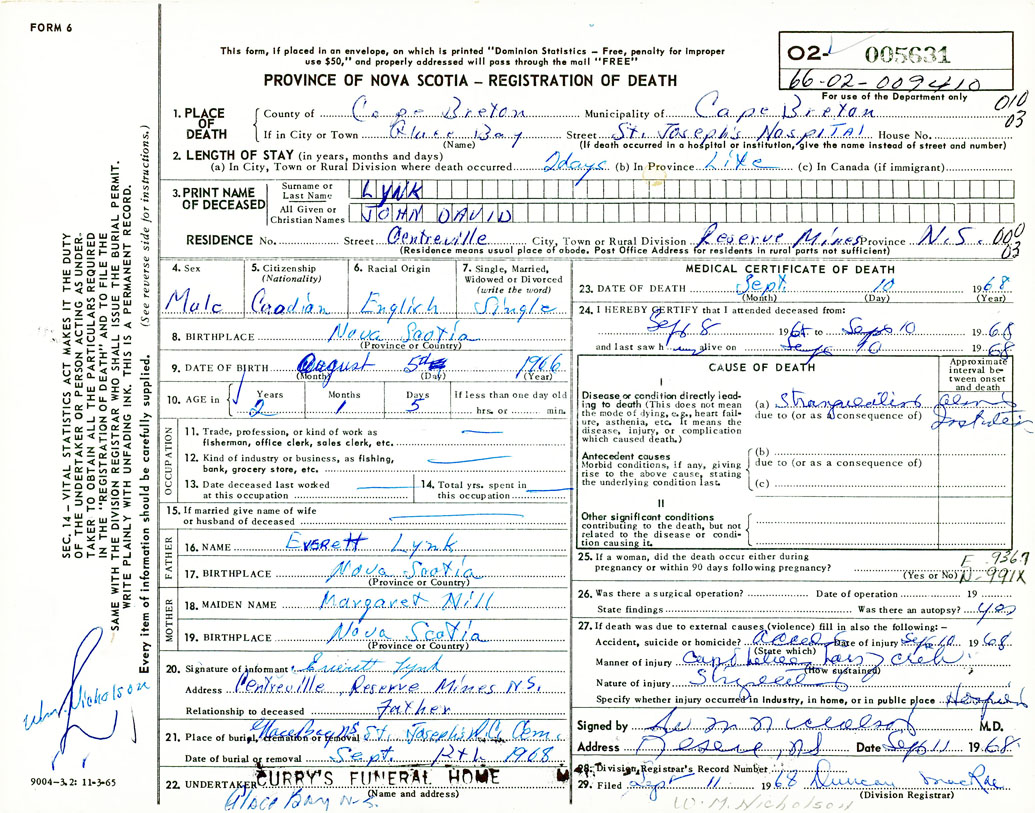 FORM 6
This form, if placed in an envelope, on which is printed "Dominion Statistics – Free, penalty for improper
use $50," and properly addressed will pass through the mail "FREE"
PROVINCE OF NOVA SCOTIA – REGISTRATION OF DEATH
02- 005631
66-02-009410
For use of the Department only
010
03
1. PLACE OF DEATH
County of Cape Breton Municipality of Cape Breton
If in City or Town Glace Bay Street St. Joseph's Hospital House No.
(Name) (If death occurred in a hospital or institution, give the name instead of street and number)
2. LENGTH OF STAY (in years, months and days)
(a) In City, Town or Rural Division where death occurred 2 days (b) In Province Life (c) In Canada (if immigrant)
3. PRINT NAME OF DECEASED
Surname or Last Name LYNK
All Given or Christian Names JOHN DAVID
RESIDENCE No. Street Centreville City, Town or Rural Division Reserve Mines Province N.S.
(Residence means usual place of abode. Post Office Address for residents in rural parts not sufficient)
000
03
4. Sex
Male
5. Citizenship
(Nationality)
Canadian
6. Racial Origin
English
7. Single, Married,
Widowed or Divorced
(write the word)
Single
8. BIRTHPLACE Nova Scotia
(Province or Country)
9. DATE OF BIRTH August 5th 1966
(Month) (Day) (Year)
10. AGE in Years Months Days If less than one day old
2 1 5 hrs. or min.
OCCUPATION
11. Trade, profession, or kind of work as
fisherman, office clerk, sales clerk, etc.
12. Kind of industry or business, as fishing,
bank, grocery store, etc.
13. Date deceased last worked
at this occupation
14. Total yrs. spent in
this occupation
15. If married give name of wife
or husband of deceased
FATHER
16. NAME Everett Lynk
17. BIRTHPLACE Nova Scotia
(Province or Country)
MOTHER
18. MAIDEN NAME Margaret Nill
19. BIRTHPLACE Nova Scotia
(Province or Country)
20. Signature of informant Everett Lynk
Address Centreville, Reserve Mines N.S.
Relationship to deceased Father
21. Place of burial, cremation or removal Glace Bay NS St. Joseph's R.C. Cem.
Date of burial or removal Sept. 1968
22. UNDERTAKER CURRY'S FUNERAL HOME
(Name and address)
Glace Bay N.S.
MEDICAL CERTIFICATE OF DEATH
23. DATE OF DEATH Sept. 10 1968
(Month) (Day) (Year)
24. I HEREBY CERTIFY that I attended deceased from:
Sept 8 1968 to Sept 10 1968
and last saw h im alive on Sept 10 1968
CAUSE OF DEATH
Approximate interval between onset and death
I
Disease or condition directly leading to death (This does not mean the mode of dying, e.g., heart failure, asthenia, etc. It means the disease, injury, or complication which caused death.)
(a) Strangulation
due to (or as a consequence of)
Antecedent causes
Morbid conditions, if any, giving rise to the above cause, stating the underlying condition last.
(b)
due to (or as a consequence of)
(c)
II
Other significant conditions
contributing to the death, but not related to the disease or condition causing it.
25. If a woman, did the death occur either during
pregnancy or within 90 days following pregnancy?
(Yes or No)
E-936.7
N-991X
26. Was there a surgical operation? Date of operation 19
State findings Was there an autopsy? yes
27. If death was due to external causes (violence) fill in also the following: –
Accident, suicide or homicide? Accid Date of injury Sept 10 1968
(State which)
Manner of injury
(How sustained)
Nature of injury
Specify whether injury occurred in Industry, in home, or in public place Hospital
Signed by W M Nicholson M.D.
Address Reserve, NS Date Sept 11 1968
28. Division Registrar's Record Number
29. Filed Sept 11 1968 Duncan MacRae
(Division Registrar)
W. M. Nicholson
SEC. 14 – VITAL STATISTICS ACT MAKES IT THE DUTY
OF THE UNDERTAKER OR PERSON ACTING AS UNDER-
TAKER TO OBTAIN ALL THE PARTICULARS REQUIRED
IN THE "REGISTRATION OF DEATH" AND TO FILE THE
SAME WITH THE DIVISION REGISTRAR WHO SHALL ISSUE THE BURIAL PERMIT.
WRITE PLAINLY WITH UNFADING INK. THIS IS A PERMANENT RECORD.
Every item of information should be carefully supplied. (See reverse side for instructions.)
Wm. Nicholson
9004-3.2: 11-3-65